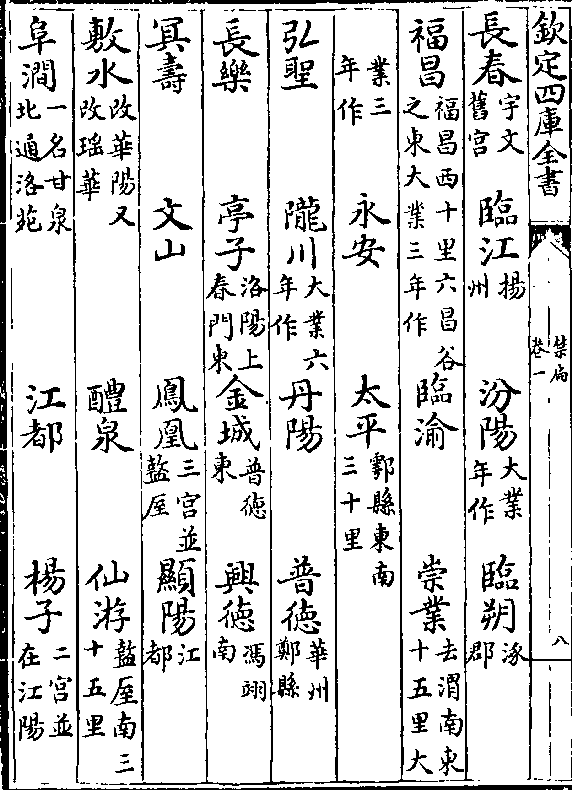 欽定四庫全書 禁扁 卷一 八
長春 宇文舊宮 臨江 揚州 汾陽 大業年作 臨朔 涿郡
福昌 福昌西十里六昌谷之東大業三年作 臨渝 崇業 去渭南東十五里大
業三年作 永安 太平 鄠縣東南三十里
弘聖 隴川 大業六年作 丹陽 普德 華州鄭縣
長樂 亭子 洛陽上春門東 金城 普德東 興德 馮翊南
冥壽 文山 鳳凰 三宮並盩厔 顯陽 江都
敷水 改華陽又改瑤華 醴泉 仙游 盩厔南三十五里
阜澗 一名甘泉北通洛苑 江都 楊子 二宮並在江陽